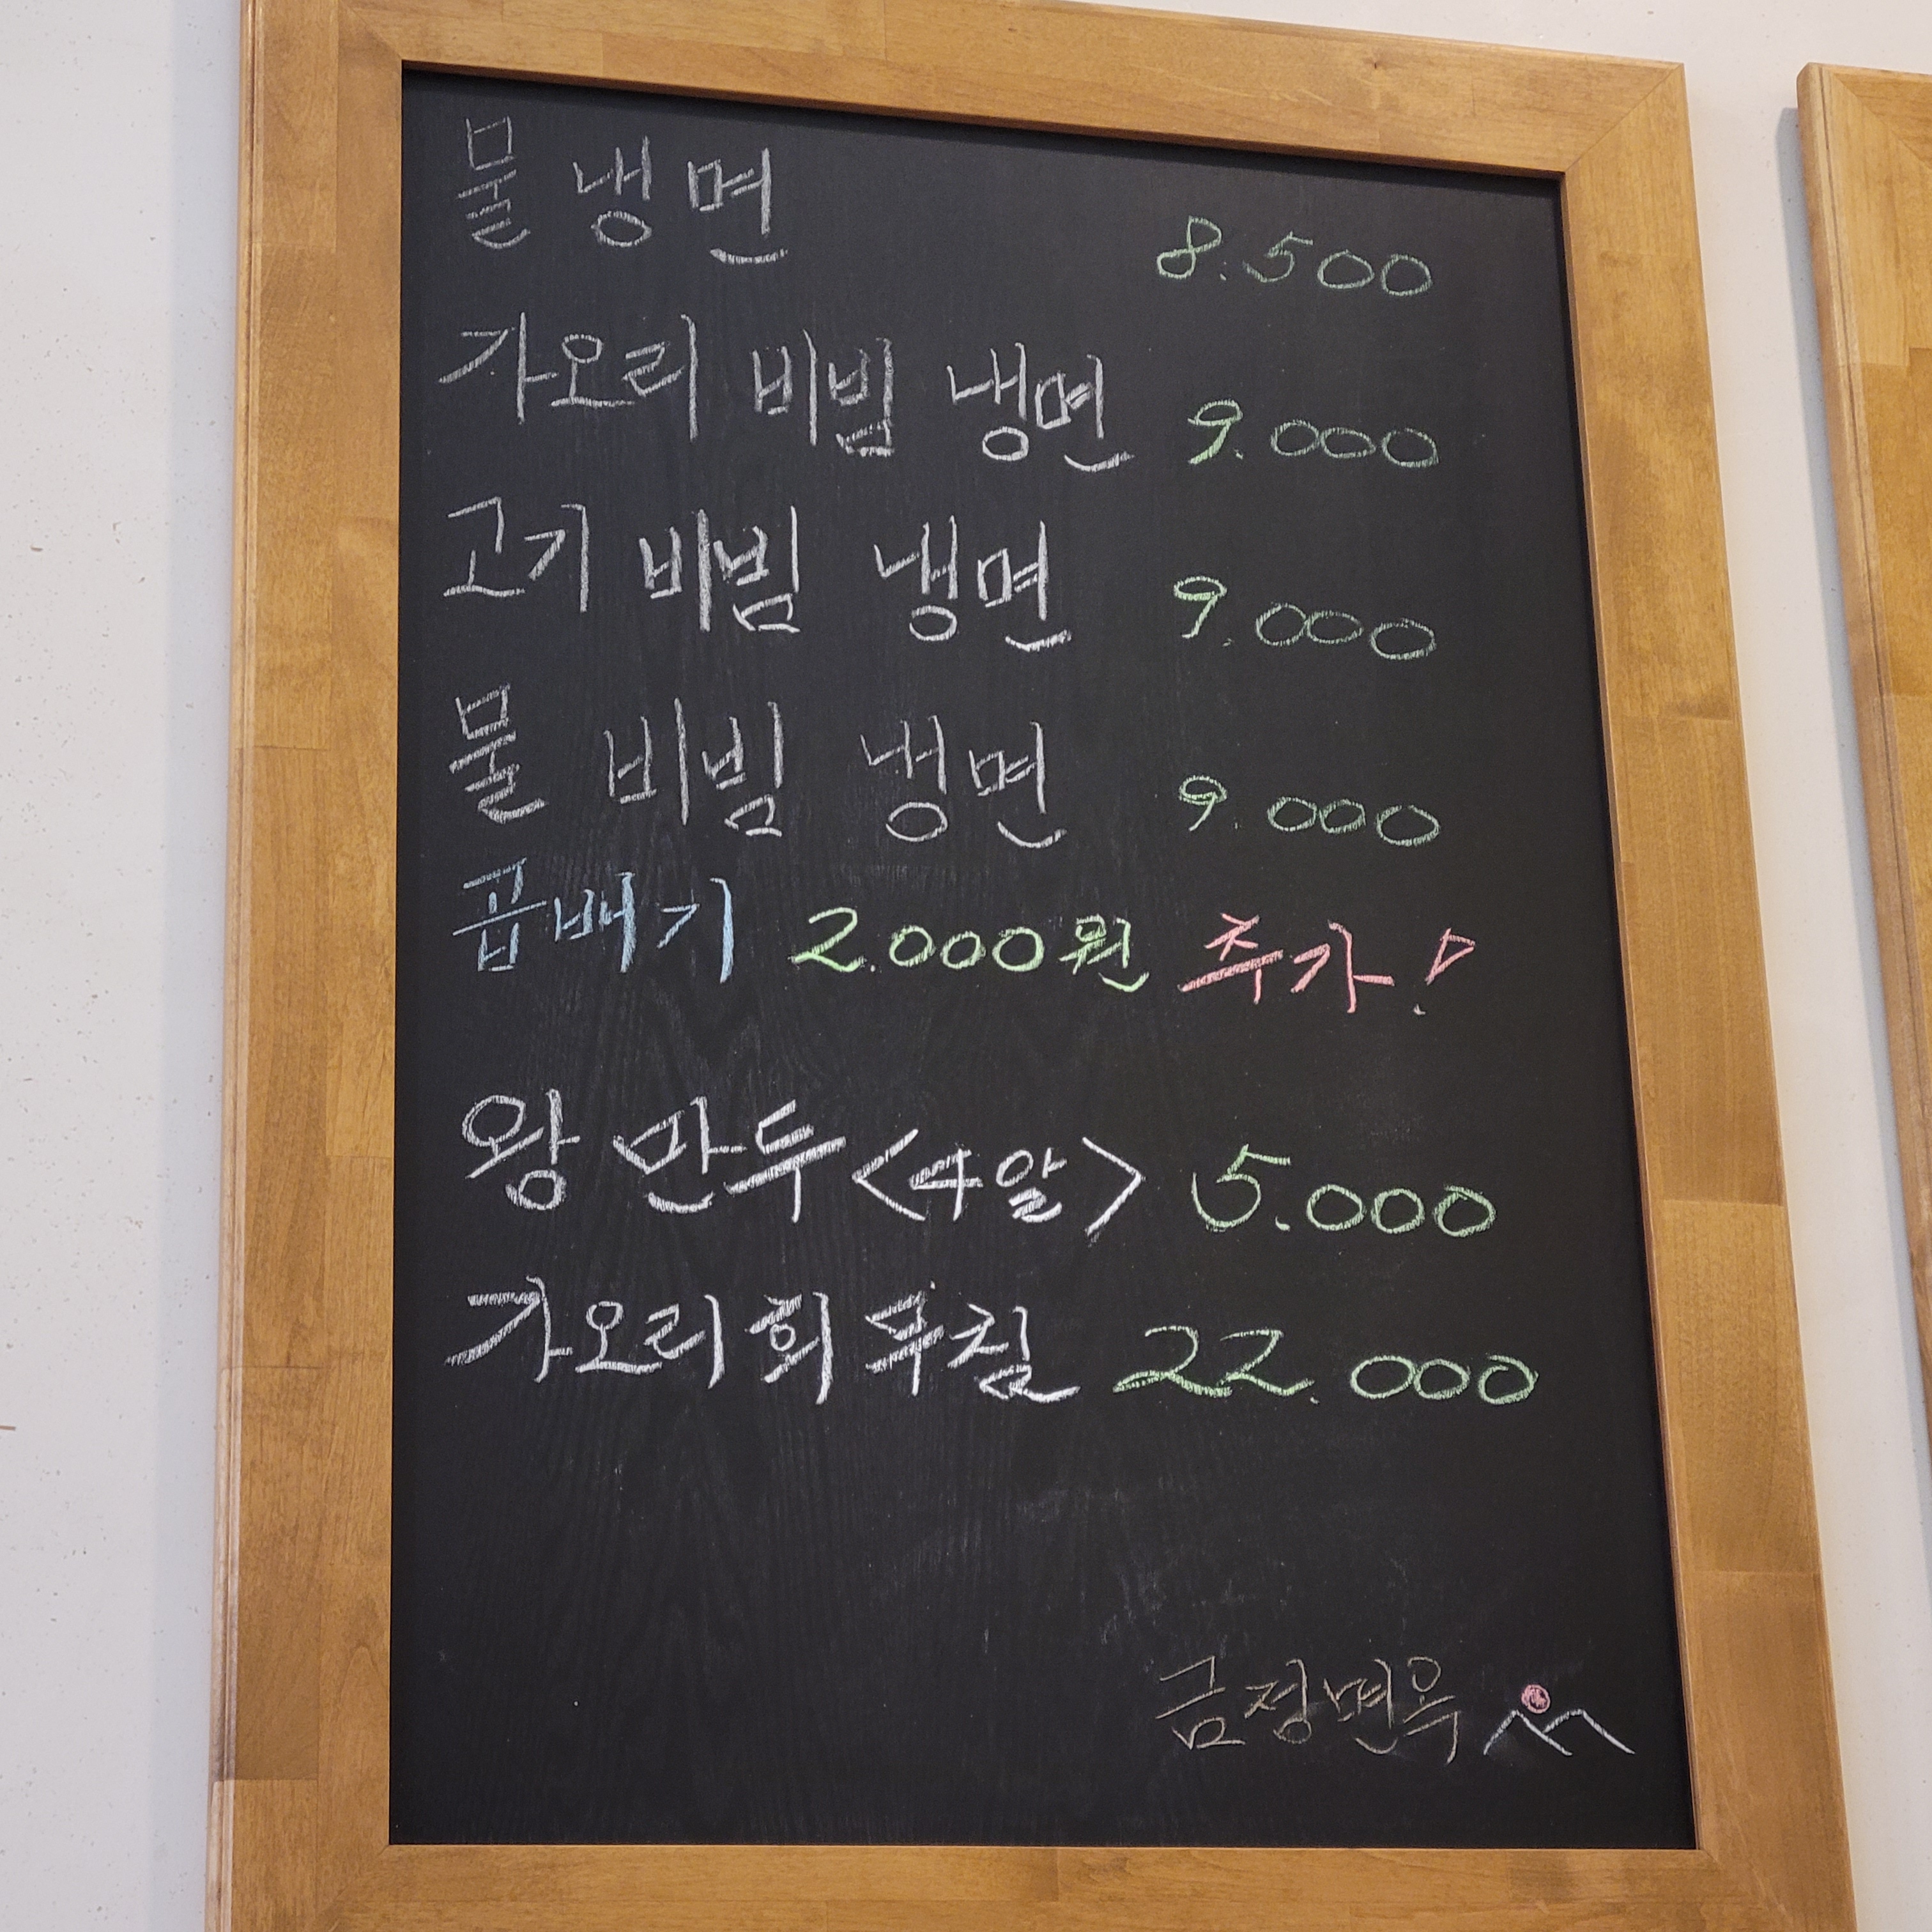 물냉면 8.500
가오리 비빔 냉면 9.000
고기 비빔 냉면 9.000
물 비빔 냉면 9.000
곱배기 2.000원 추가!
왕만두<4알> 5.000
가오리회무침 22.000
금정면옥